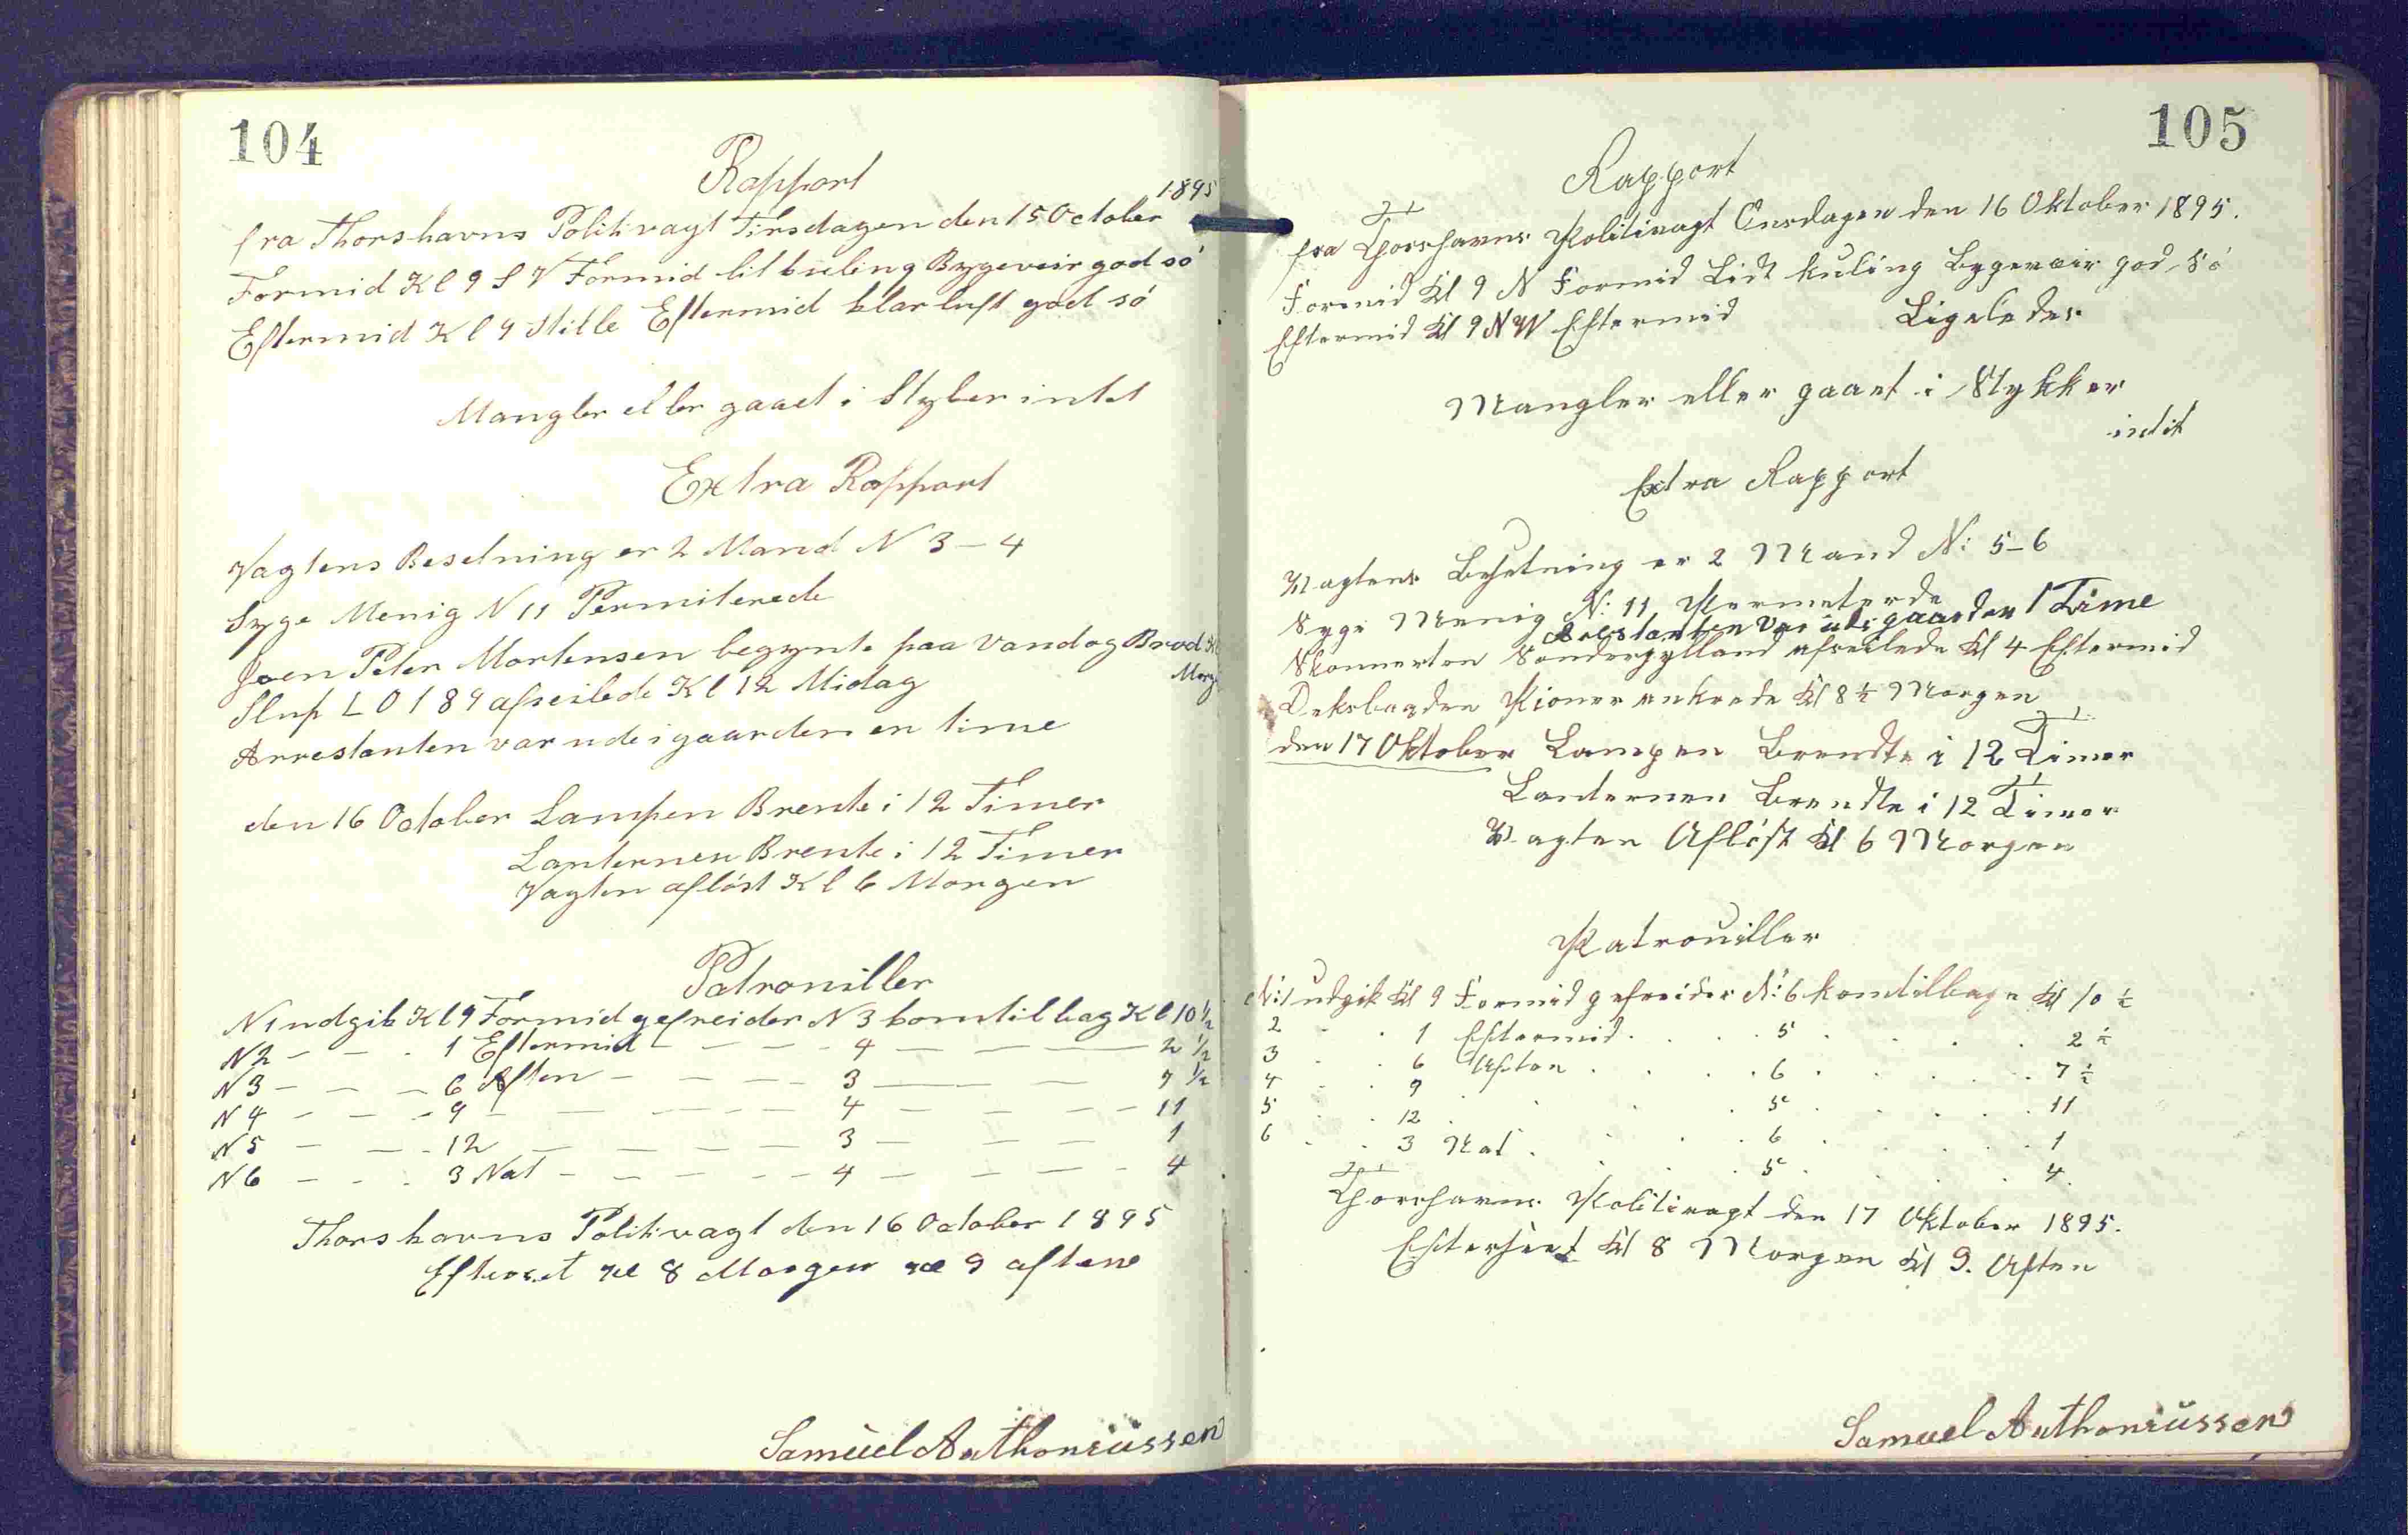 104
Rapport
1895
fra Thorshavns Politivagt Tirsdagen den 15 October
Formid Kl 9 S V Formid lit kuling Bygeveir god só
Eftermid Kl 9 Stille Eftermid klar luft god só
Mangler eller gaaet i Styker intet
Extra Rapport
Vagtens Besetning er 2 Mand N 3 – 4
Syge Menig N 11 Permiterede
Joen Peter Mortensen begynte paa Vand og Brod Kl
Morg
Slup LO 189 afseilede Kl 12 Midag
Arrestanten var ude i gaarden en time
den 16 October Lampen Brente i 12 Timer
Lanternen Brente i 12 Timer
Vagten aflóst Kl 6 Morgen
Patrouiller
N1 udgik Kl 9 Formid gefreider N 3 kom tilbag Kl 10 ½
N2 – – - 1 Eftermid – – – - 4 – – – 2 ½
N3 – – – 6 Aften – – – - 3 – – – 7 ½
N4 – – - 9 – – – – - 4 – – – – 11
N5 – – - 12 – – – – 3 – – – – 1
N6 – - - 3 Nat – – – – - 4 – – – - 4
Thorshavns Politivagt den 16 October 1895
Efterset Kl 8 Morgen Kl 9 aftene
Samuel Anthoniussen
105
Rapport
fra Thorshavns Politivagt Onsdagen den 16 Oktober 1895.
Formid Kl 9 N Formid Lidt kuling Bygeveir god só
Eftermid Kl 9 NW Eftermid Ligeledes
Mangler eller gaaet i Stykker
intit
Extra Rapport
Vagtens Besetning er 2 Mand N: 5–6
Syge Menig N: 11, Permeterde
Arestanten var ude i gaarden 1 Time
Skonnerten Sonderjylland afseilede Kl 4 Eftermid
Deksbaaden Pioner ankrede Kl 8 ½ Morgen
den 17 Oktober Lampen Brendte i 12 Timer
Lanternen Brendte i 12 Timer
Vagten Aflóst Kl 6 Morgen
Patrouiller
N:1 udgik Kl 9 Formid gefreider N: 6 kom tilbage Kl 10 ½
2 . . 1 Eftermid . . . 5 . . . . 2 ½
3 . . 6 Aften . . . . 6 . . . . 7 ½
4 . . 9 . . . . 5 . . . . 11
5 . . 12 . . . . 6 . . . . 1
6 . . 3 Nat . . . . 5 . . . . 4.
Thorshavns Politivagt den 17 Oktober 1895.
Efterseet Kl 8 Morgen Kl 9. Aften
Samuel Anthoniussen